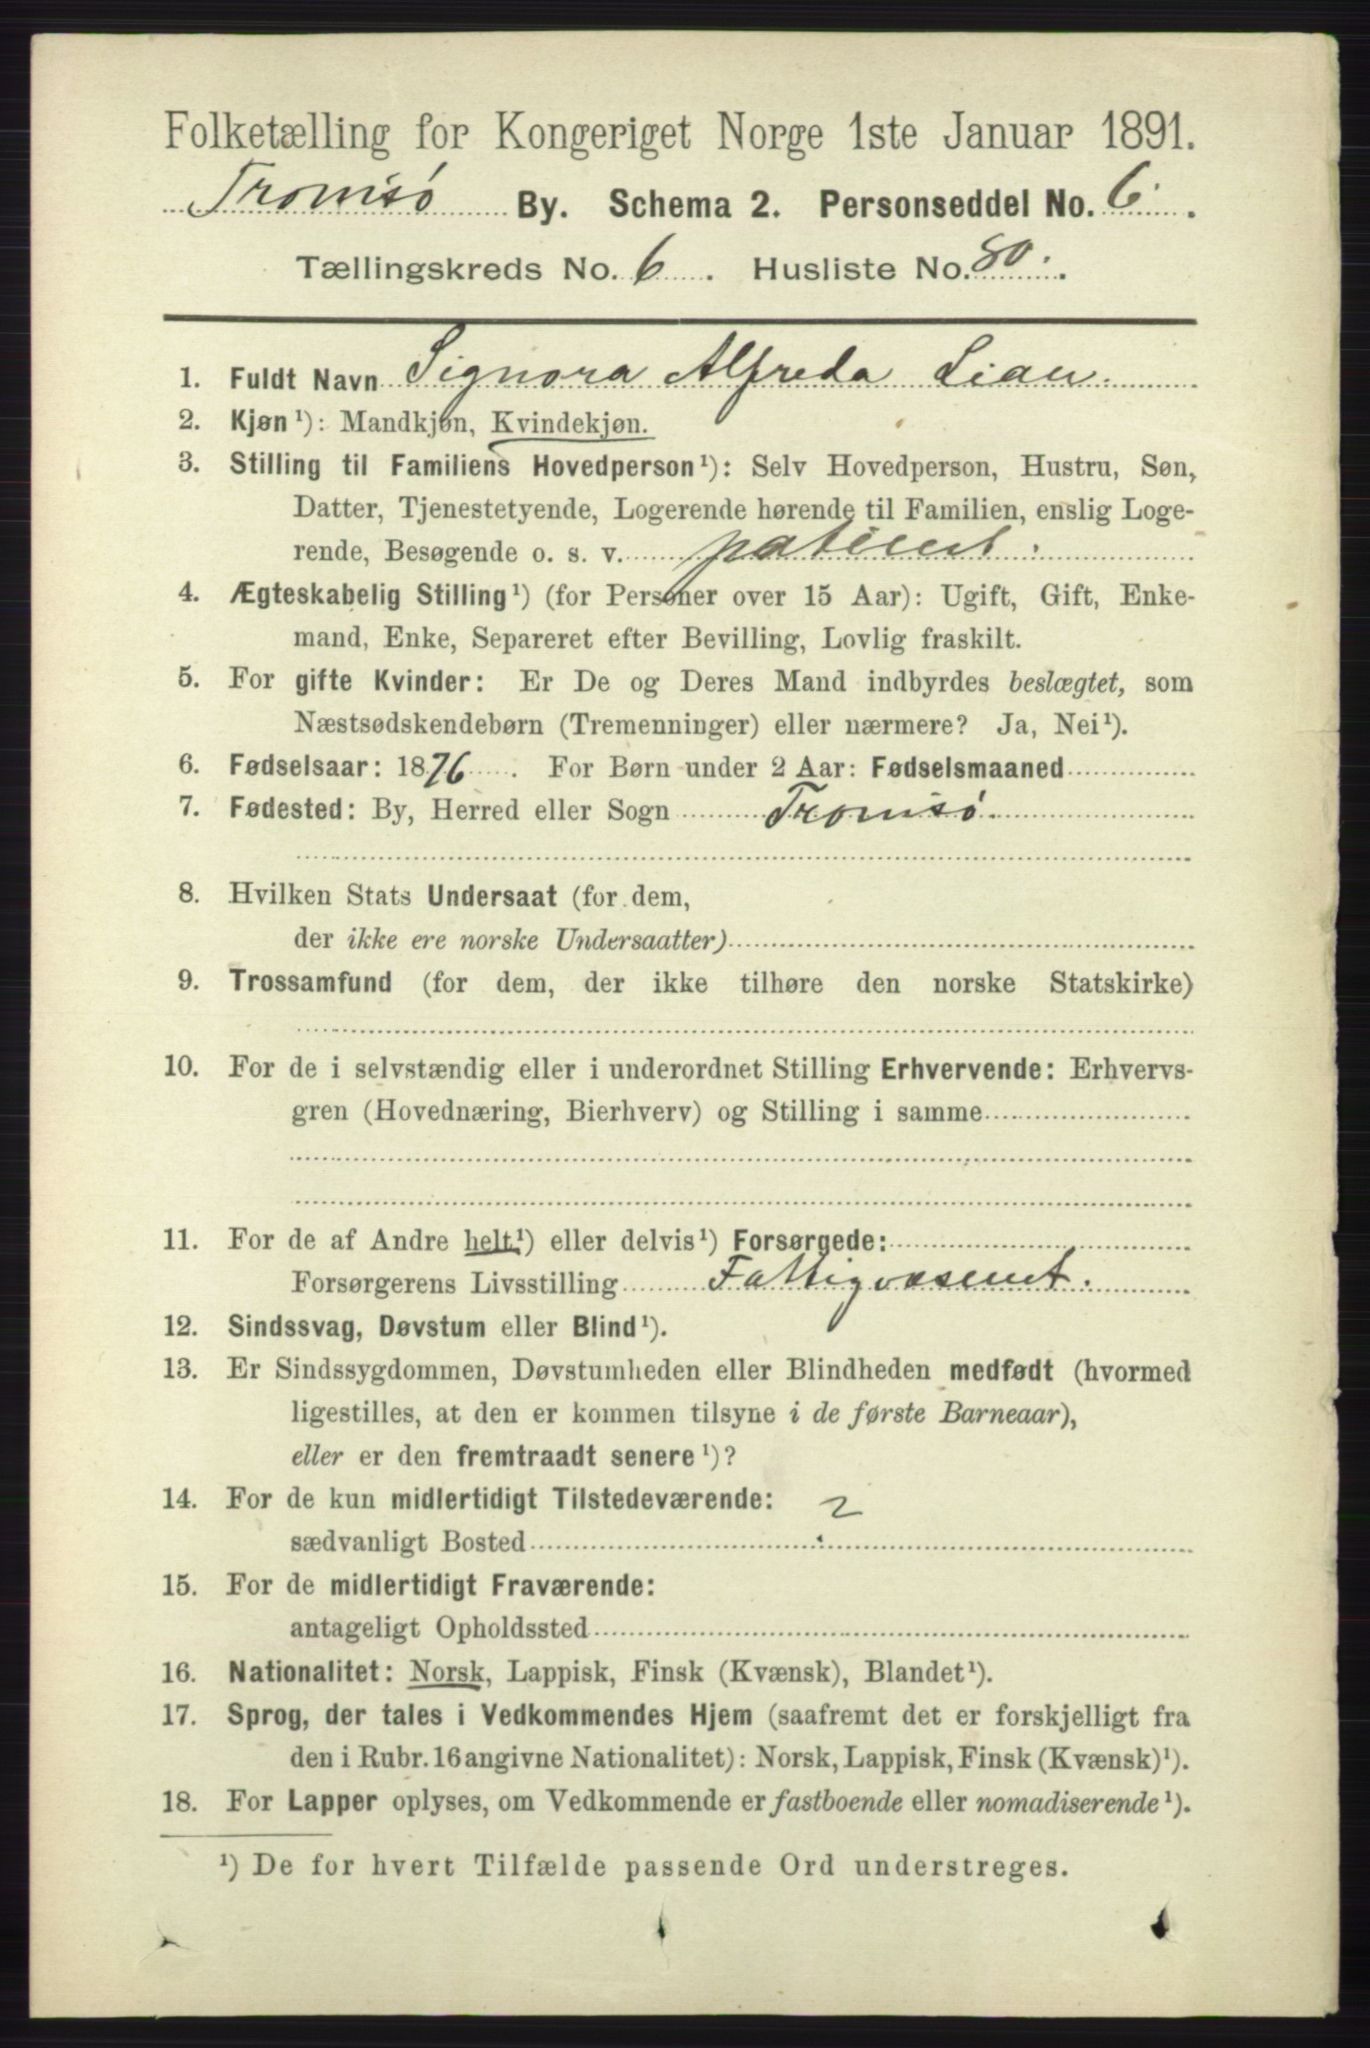 Folketælling for Kongeriget Norge 1ste Januar 1891.
Tromsø By. Schema 2. Personseddel No. 6.
Tællingskreds No. 6. Husliste No. 80.
1. Fuldt Navn Signora Alfreda Lian.
2. Kjøn¹): Mandkjøn, Kvindekjøn.
3. Stilling til Familiens Hovedperson¹): Selv Hovedperson, Hustru, Søn,
Datter, Tjenestetyende, Logerende hørende til Familien, enslig Loge-
rende, Besøgende o. s. v. patient.
4. Ægteskabelig Stilling¹) (for Personer over 15 Aar): Ugift, Gift, Enke-
mand, Enke, Separeret efter Bevilling, Lovlig fraskilt.
5. For gifte Kvinder: Er De og Deres Mand indbyrdes beslægtet, som
Næstsødskendebørn (Tremenninger) eller nærmere? Ja, Nei¹).
6. Fødselsaar: 1876. For Børn under 2 Aar: Fødselsmaaned
7. Fødested: By, Herred eller Sogn Tromsø.
8. Hvilken Stats Undersaat (for dem,
der ikke ere norske Undersaatter)
9. Trossamfund (for dem, der ikke tilhøre den norske Statskirke)
10. For de i selvstændig eller i underordnet Stilling Erhvervende: Erhvervs-
gren (Hovednæring, Bierhverv) og Stilling i samme
11. For de af Andre helt¹) eller delvis¹) Forsørgede:
Forsørgerens Livsstilling Fattigvæsenet.
12. Sindssvag, Døvstum eller Blind¹).
13. Er Sindssygdommen, Døvstumheden eller Blindheden medfødt (hvormed
ligestilles, at den er kommen tilsyne i de første Barneaar),
eller er den fremtraadt senere¹)?
14. For de kun midlertidigt Tilstedeværende:
sædvanligt Bosted ?
15. For de midlertidigt Fraværende:
antageligt Opholdssted
16. Nationalitet: Norsk, Lappisk, Finsk (Kvænsk), Blandet¹).
17. Sprog, der tales i Vedkommendes Hjem (saafremt det er forskjelligt fra
den i Rubr. 16 angivne Nationalitet): Norsk, Lappisk, Finsk (Kvænsk)¹).
18. For Lapper oplyses, om Vedkommende er fastboende eller nomadiserende¹).
¹) De for hvert Tilfælde passende Ord understreges.